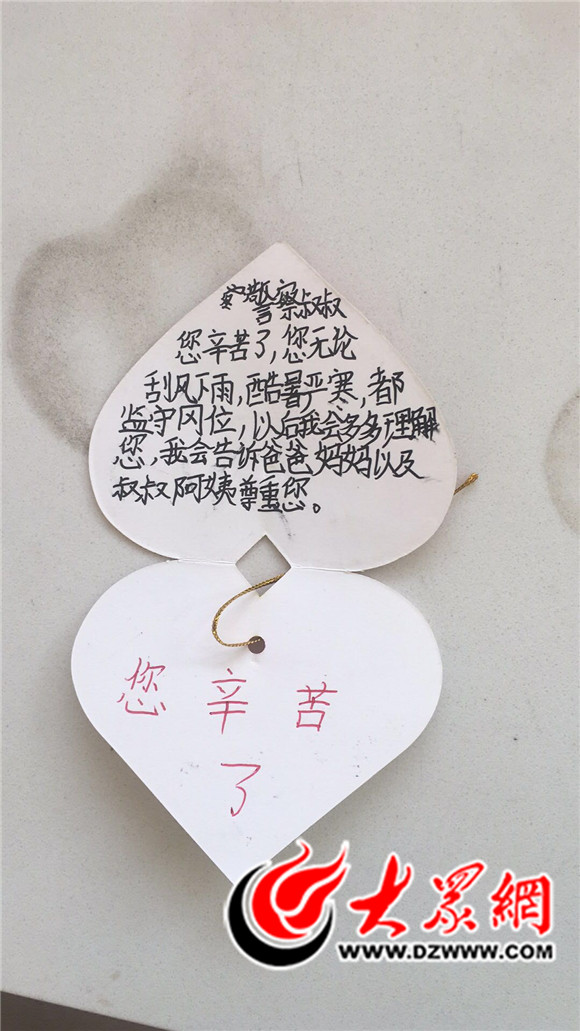 警察叔叔
您辛苦了，您无论
刮风下雨，酷暑严寒，都
监守冈位，以后我会多多理解
您，我会告诉爸爸妈妈以及
叔叔阿姨尊重您。
您辛苦
了
大眾網
WWW.DZWWW.COM